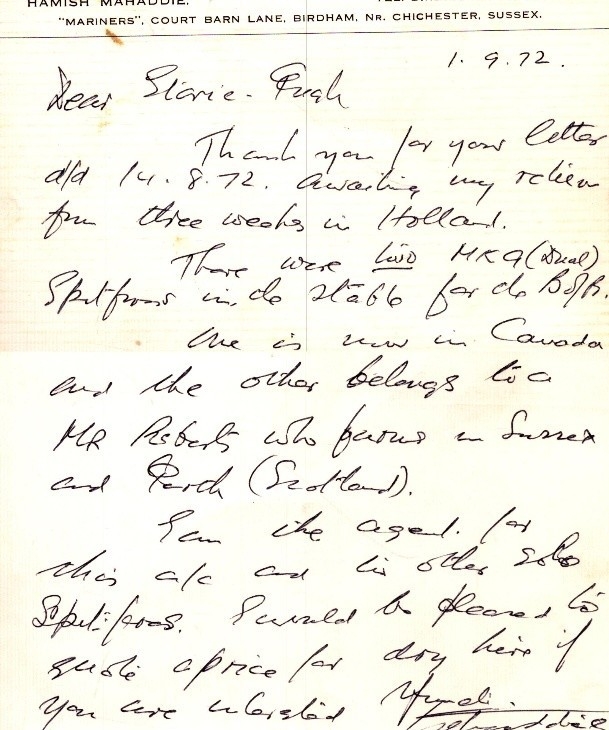 HAMISH MAHADDIE.
"MARINERS", COURT BARN LANE, BIRDHAM, NR. CHICHESTER, SUSSEX.
1. 9. 72.
Dear Storie-Pugh
Thank you for your letter
d/d 14. 8. 72. awaiting my return
from three weeks in Holland.
There were two MK 9 (Dual)
Spitfires in de stable for de BofB.
One is now in Canada
and the other belongs to a
MR Roberts who farms in Sussex
and Perth (Scotland).
I am the agent. for
this a/c and his other solo
Spitfires. I would be pleased to
quote a price for dry hire if
you are interested
Mahaddie